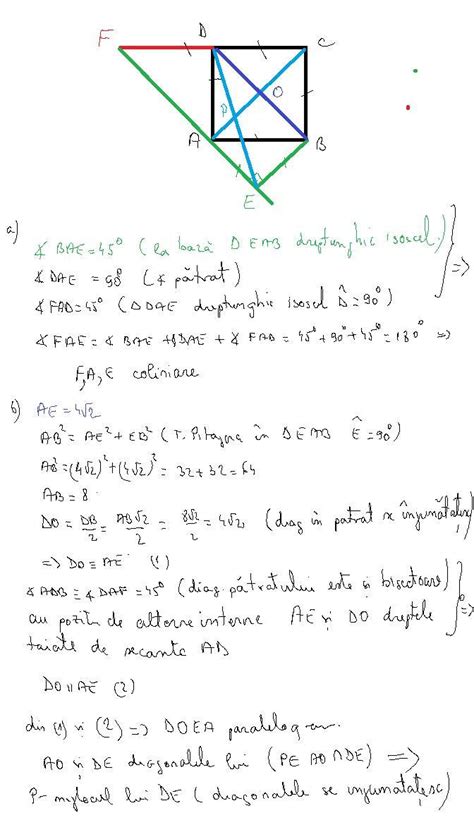 F D C
P O
A B
E
a)
∢ BAE = 45° (la bază Δ EAB dreptunghic isoscel)
∢ DAE = 90° (∢ pătrat)
∢ FAD = 45° (Δ DAE dreptunghic isoscel D̂ = 90°)
=>
∢ FAE = ∢ BAE + ∢DAE + ∢ FAD = 45° + 90° + 45° = 180° =>
F,A,E coliniare
b) AE = 4√2
AB² = AE² + EB² (T. Pitagora în Δ EAB Ê = 90°)
AB² = (4√2)² + (4√2)² = 32 + 32 = 64
AB = 8
DO = DB/2 = AB√2/2 = 8√2/2 = 4√2 (diag în patrat se înjumătățesc)
=> DO ≡ AE (1)
∢ ADB ≡ ∢ DAF = 45° (diag. pătratului este și bisectoare)
au poziții de alterne interne AE și DO dreptele
taiate de secanta AD
=>
DO ∥ AE (2)
din (1) și (2) => DOEA paralelogram.
AO și DE diagonalele lui (P∈ AO ∩ DE) =>
P- mijlocul lui DE (diagonalele se injumatațesc)